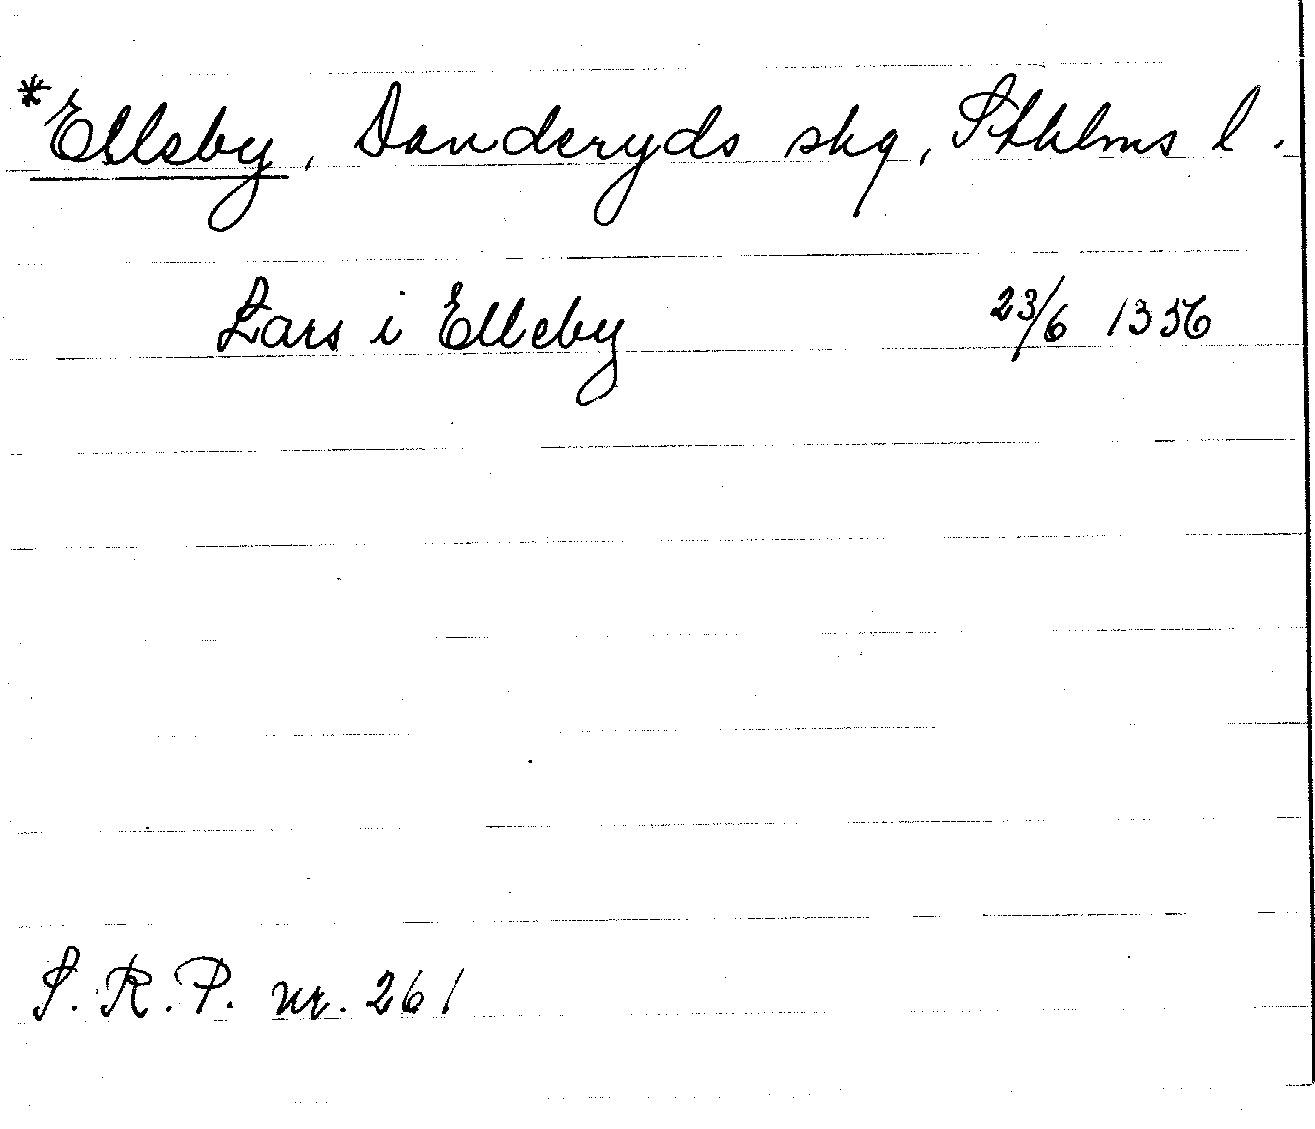 *Elleby, Danderyds skg, Sthlms l.
Lars i Elleby 23/6 1356
S.R.P. nr. 261